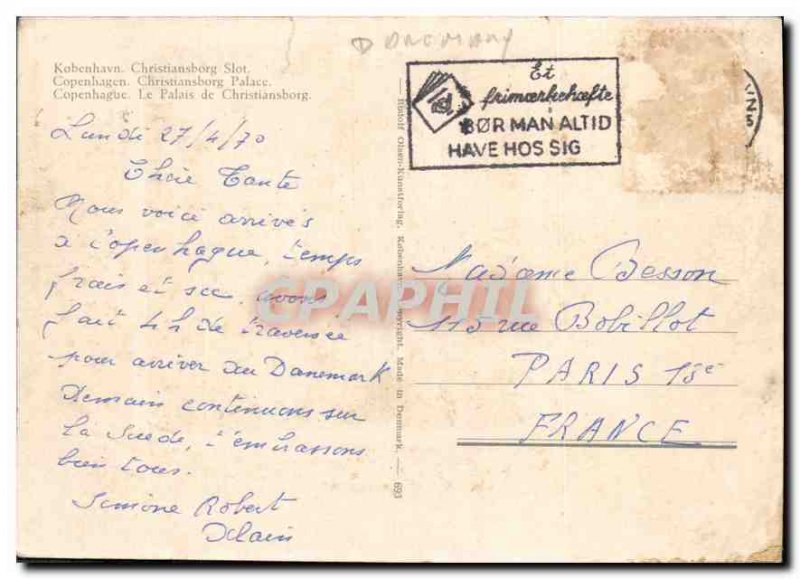 København. Christiansborg Slot.
Copenhagen. Christiansborg Palace.
Copenhague. Le Palais de Christiansborg.
Lundi 27/4/70
Chère Tante
Nous voici arrivés
à Copenhague, temps
frais et sec, avons
fait 4h de traversée
pour arriver au Danemark
Demain continuons sur
la Suède, t'embrassons
bien tous.
Simone Robert
Alain
Rudolf Olsen-Kunstforlag, København. Copyright. Made in Denmark. — 693
Et
frimærkehæfte
BØR MAN ALTID
HAVE HOS SIG
Madame Besson
115 rue Bobillot
PARIS 13e
FRANCE
CPAPHIL